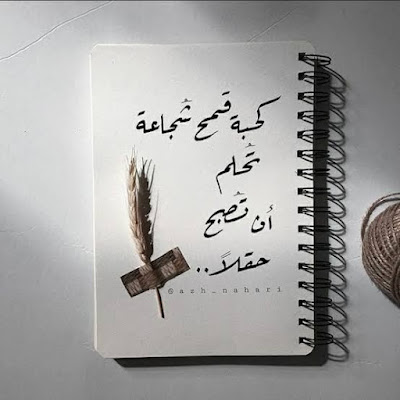 كحبة قمح شُجاعة
تَحلم
أن تُصبح
حقلاً..
@azh_nahari